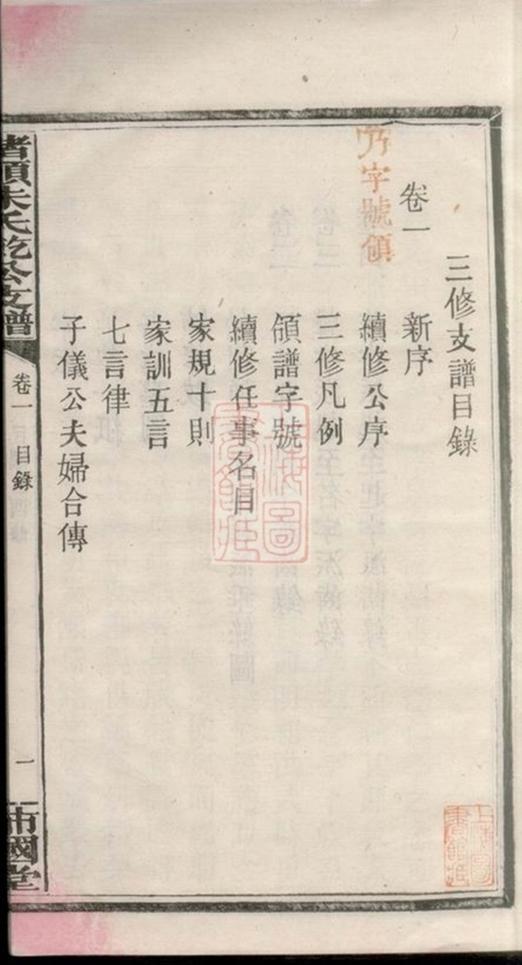 三修支譜目錄
卷一
乃字號領
新序
續修公序
三修凡例
領譜字號
續修任事名目
家規十則
家訓五言
七言律
子儀公夫婦合傳
朱氏乾公支譜
卷一
目錄
一
國堂